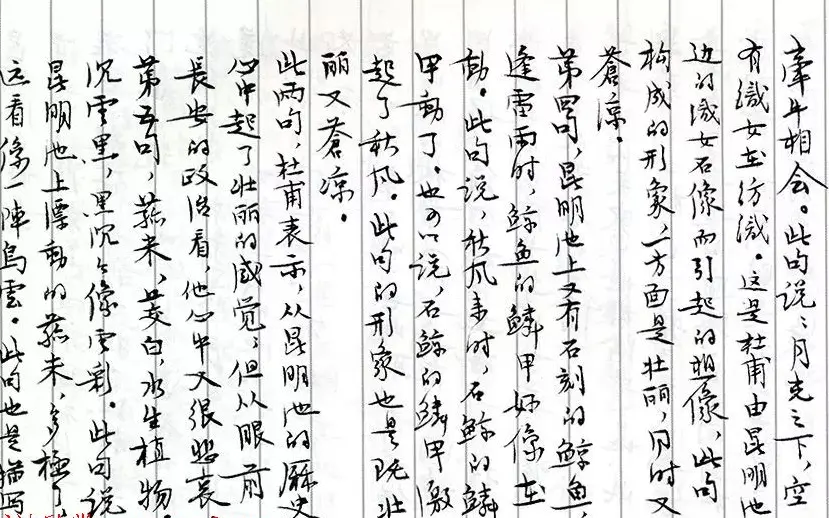 牵牛相会。此句说：月光之下，空
有織女在纺織。这是杜甫由昆明池
边的識女石像而引起的想像，此句
构成的形象，一方面是壮丽，同时又
蒼凉。
第四句，昆明池上又有石刻的鲸鱼，
逢雷雨时，鲸鱼的鳞甲好像在
動。此句说，秋风来时，石鲸的鳞
甲動了。也可以说，石鲸的鳞甲激
起了秋风。此句的形象也是既壮
丽又蒼凉。
此两句，杜甫表示，从昆明池的歷史
心中起了壮丽的感觉，但从眼前
長安的政治看，他心中又很悲哀
第五句，菰米，茭白，水生植物。
沉雲黑，黑沉々像雲彩。此句说
昆明池上漂動的菰米，多極了
远看像一陣烏雲。此句也是描写